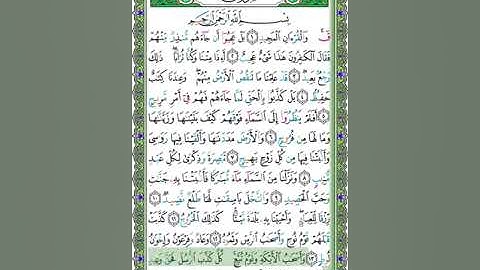 بِسْمِ ٱللَّهِ ٱلرَّحْمَٰنِ ٱلرَّحِيمِ
قٓ ۚ وَٱلْقُرْءَانِ ٱلْمَجِيدِ ١ بَلْ عَجِبُوٓا۟ أَن جَآءَهُم مُّنذِرٌ مِّنْهُمْ
فَقَالَ ٱلْكَٰفِرُونَ هَٰذَا شَىْءٌ عَجِيبٌ ٢ أَءِذَا مِتْنَا وَكُنَّا تُرَابًا ۖ ذَٰلِكَ
رَجْعٌۢ بَعِيدٌ ٣ قَدْ عَلِمْنَا مَا تَنقُصُ ٱلْأَرْضُ مِنْهُمْ ۖ وَعِندَنَا كِتَٰبٌ
حَفِيظٌۢ ٤ بَلْ كَذَّبُوا۟ بِٱلْحَقِّ لَمَّا جَآءَهُمْ فَهُمْ فِىٓ أَمْرٍ مَّرِيجٍ
٥ أَفَلَمْ يَنظُرُوٓا۟ إِلَى ٱلسَّمَآءِ فَوْقَهُمْ كَيْفَ بَنَيْنَٰهَا وَزَيَّنَّٰهَا
وَمَا لَهَا مِن فُرُوجٍ ٦ وَٱلْأَرْضَ مَدَدْنَٰهَا وَأَلْقَيْنَا فِيهَا رَوَٰسِىَ
وَأَنۢبَتْنَا فِيهَا مِن كُلِّ زَوْجٍۭ بَهِيجٍ ٧ تَبْصِرَةً وَذِكْرَىٰ لِكُلِّ عَبْدٍ
مُّنِيبٍ ٨ وَنَزَّلْنَا مِنَ ٱلسَّمَآءِ مَآءً مُّبَٰرَكًا فَأَنۢبَتْنَا بِهِۦ جَنَّٰتٍ
وَحَبَّ ٱلْحَصِيدِ ٩ وَٱلنَّخْلَ بَاسِقَٰتٍ لَّهَا طَلْعٌ نَّضِيدٌ ١٠
رِّزْقًا لِّلْعِبَادِ ۖ وَأَحْيَيْنَا بِهِۦ بَلْدَةً مَّيْتًا ۚ كَذَٰلِكَ ٱلْخُرُوجُ ١١ كَذَّبَتْ
قَبْلَهُمْ قَوْمُ نُوحٍ وَأَصْحَٰبُ ٱلرَّسِّ وَثَمُودُ ١٢ وَعَادٌ وَفِرْعَوْنُ وَإِخْوَٰنُ
لُوطٍ ١٣ وَأَصْحَٰبُ ٱلْأَيْكَةِ وَقَوْمُ تُبَّعٍ ۚ كُلٌّ كَذَّبَ ٱلرُّسُلَ فَحَقَّ وَعِيدِ